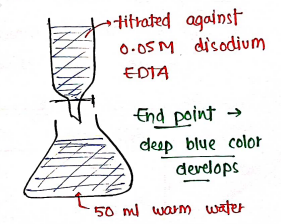 titrated against
0.05M disodium
EDTA
End point →
deep blue color
develops
50 ml warm water